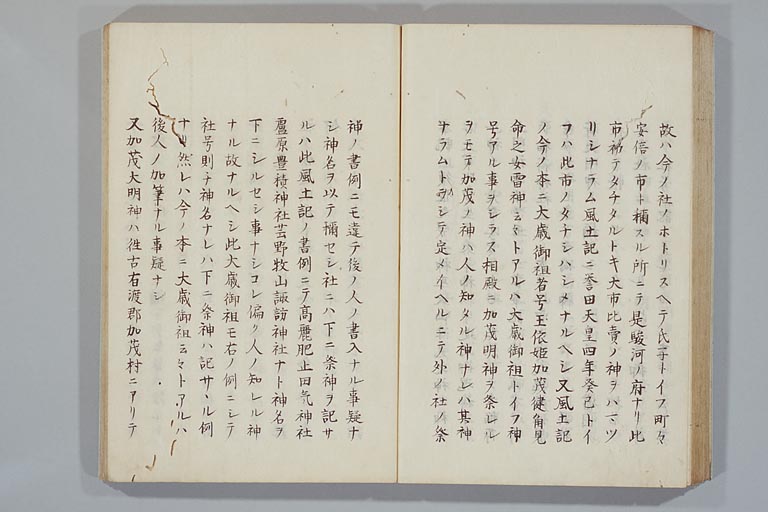 故ハ今ノ社ノホトリスヘテ氏子トイフ町々
安倍ノ市ト稱スル所ニテ是駿河ノ府ナリ此
市初テタチタルトキ大市比賣ノ神ヲハマツ
リシナラム風土記ニ誉田天皇四年癸巳トイ
フハ此市ノタチシハシメナルヘシ又風土記
ノ今ノ本ニ大歳御祖者号玉依姫加茂健角見
命之女雷神云々トアルハ大歳御祖トイフ神
号アル事ヲシラス相殿ニ加茂明神ヲ祭レル
ヲモテ加茂ノ神ハ人ノ知タル神ナレハ其神
ナラムトヲシテ定メイヘルニテ外ノ社ノ祭
神ノ書例ニモ違テ後ノ人ノ書入ナル事疑ナ
シ神名ヲ以テ稱セシ社ニハ下ニ祭神ヲ記サ
ルハ此風土記ノ書例ニテ高麗肥止田気神社
廬原豊積神社芸野牧山諏訪神社ナト神名ヲ
下ニシルセシ事ナシコレ偏ク人ノ知レル神
ナル故ナルヘシ此大歳御祖モ右ノ例ニシテ
社号則チ神名ナレハ下ニ祭神ハ記サヽル例
ナリ然レハ今ノ本ニ大歳御祖云々トアルハ
後人ノ加筆ナル事疑ナシ
又加茂大明神ハ往古有渡郡加茂村ニアリテ